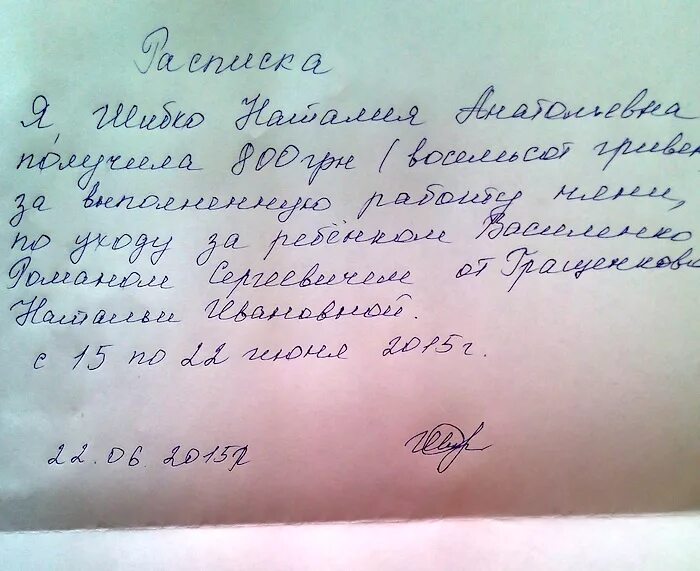 Расписка
Я, Шибко Наталия Анатольевна
получила 800грн (восемьсот гривен
за выполненную работу няни,
по уходу за ребёнком Василенко
Романом Сергеевичем от Гращенково
Натальи Ивановной.
с 15 по 22 июня 2015г.
22.06.2015г